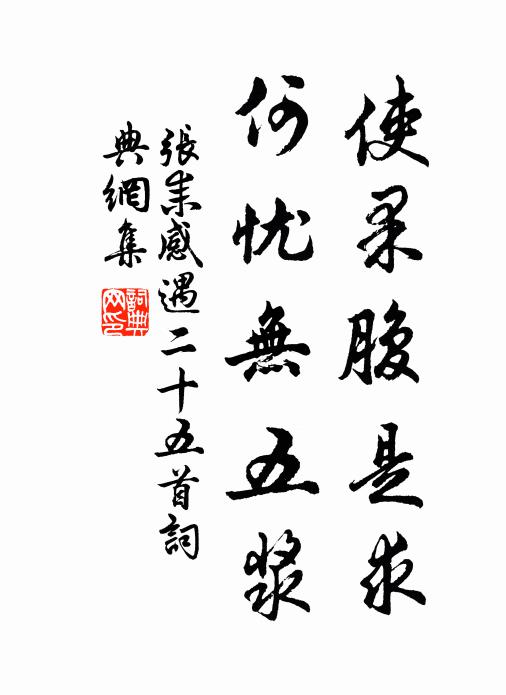 使果腹是求
何忧無五浆
張耒感遇二十五首詞
典網集
詞典网印